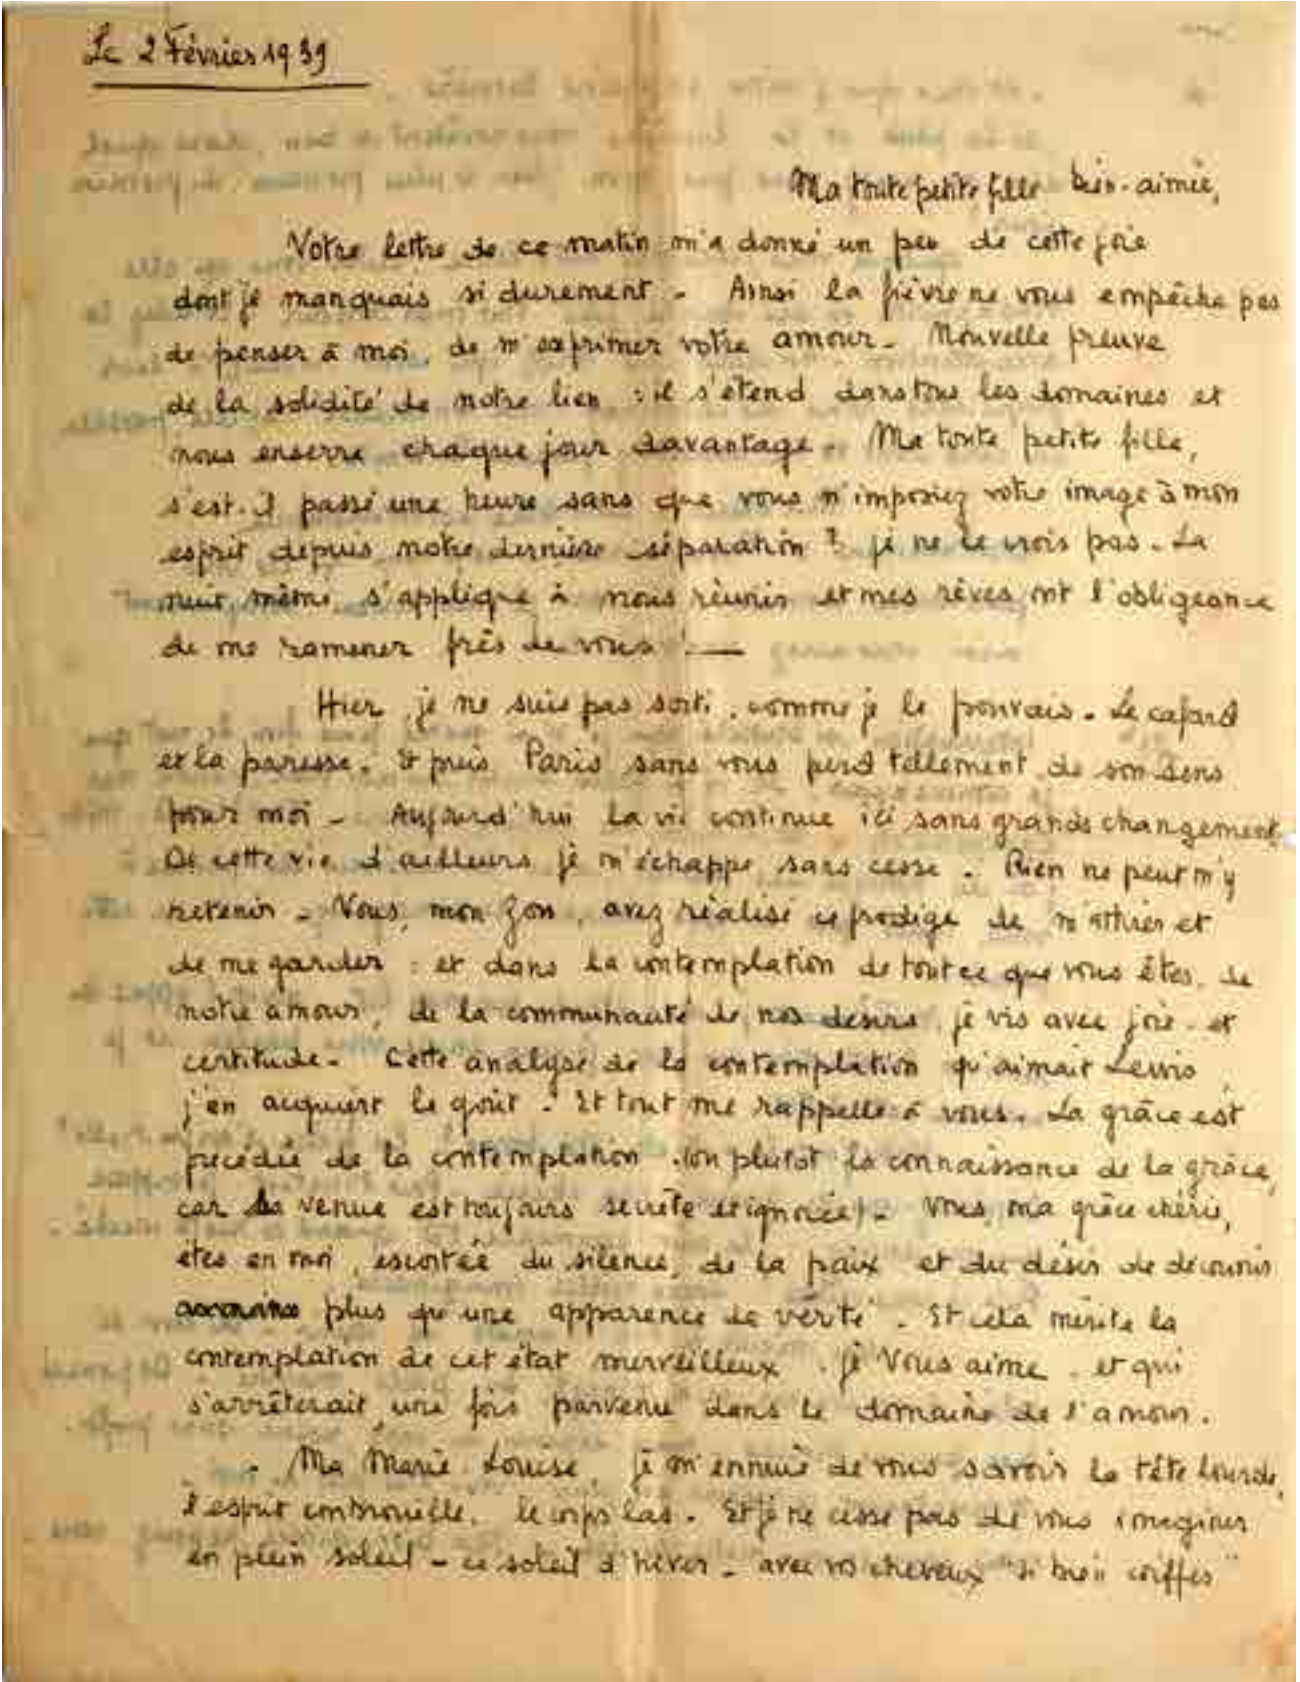 Le 2 Février 1939
Ma toute petite fille bien-aimée,
Votre lettre de ce matin m'a donné un peu de cette joie
dont je manquais si durement - Ainsi la fièvre ne vous empêche pas
de penser à moi, de m'exprimer votre amour - Nouvelle preuve
de la solidité de notre lien : il s'étend dans tous les domaines et
nous enserre chaque jour davantage. Ma toute petite fille,
s'est-il passé une heure sans que vous n'imposiez votre image à mon
esprit depuis notre dernière séparation ? je ne le crois pas - La
nuit même, s'applique à nous réunir et mes rêves ont l'obligeance
de me ramener près de vous ! —
Hier, je ne suis pas sorti, comme je le pouvais - Le cafard
et la paresse. Et puis Paris sans vous perd tellement de son sens
pour moi - Aujourd'hui la vie continue ici sans grands changements
De cette vie d'ailleurs je m'échappe sans cesse. Rien ne peut m'y
retenir - Vous, mon Zou, avez réalisé ce prodige de m'attirer et
de me garder : et dans la contemplation de tout ce que vous êtes, de
notre amour, de la communauté de nos désirs, je vis avec joie et
certitude - Cette analyse de la contemplation qu'aimait
j'en acquiert le goût. Et tout me rappelle à vous. La grâce est
précédée de la contemplation (ou plutôt la connaissance de la grâce,
car sa venue est toujours secrète et ignorée) - Vous, ma grâce chérie,
êtes en moi, escortée du silence, de la paix et du désir de découvrir
plus qu'une apparence de vérité. Et cela mérite la
contemplation de cet état merveilleux : je vous aime, et qui
s'arrêterait, une fois parvenu dans le domaine de l'amour.
- Ma Marie Louise, je m'ennuie de vous savoir la tête lourde,
l'esprit embrouillé, le corps las. Et je ne cesse pas de vous imaginer
en plein soleil - ce soleil d'hiver - avec vos cheveux "si bien coiffés"